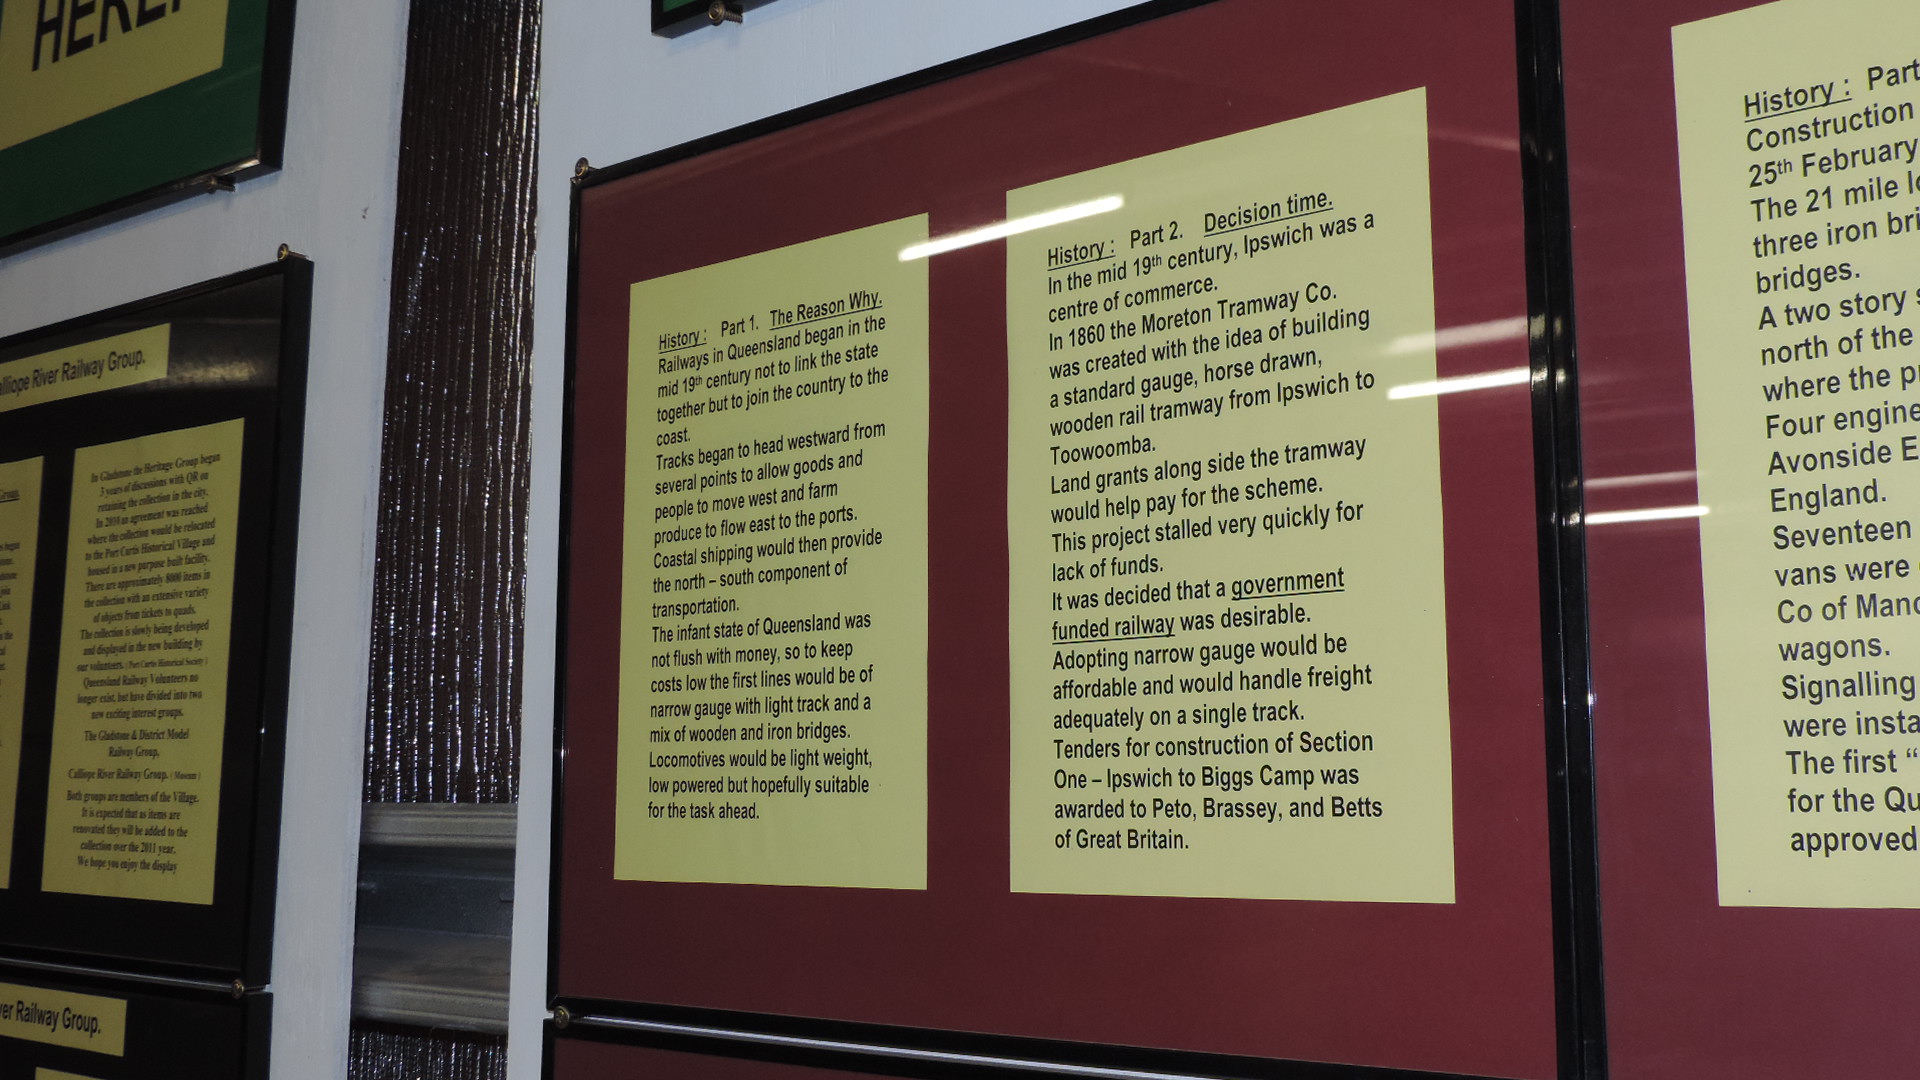 HERE!
alliope River Railway Group.
In Gladstone the Heritage Group began
3 years of discussions with QR on
retaining the collection in the city.
In 2010 an agreement was reached
where the collection would be relocated
to the Port Curtis Historical Village and
housed in a new purpose built facility.
There are approximately 8000 items in
the collection with an extensive variety
of objects from tickets to quads.
The collection is slowly being developed
and displayed in the new building by
our volunteers. ( Port Curtis Historical Society )
Queensland Railway Volunteers no
longer exist, but have divided into two
new exciting interest groups.
The Gladstone & District Model
Railway Group,
Calliope River Railway Group. ( Museum )
Both groups are members of the Village.
It is expected that as items are
renovated they will be added to the
collection over the 2011 year.
We hope you enjoy the display
ver Railway Group.
History : Part 1. The Reason Why.
Railways in Queensland began in the
mid 19th century not to link the state
together but to join the country to the
coast.
Tracks began to head westward from
several points to allow goods and
people to move west and farm
produce to flow east to the ports.
Coastal shipping would then provide
the north – south component of
transportation.
The infant state of Queensland was
not flush with money, so to keep
costs low the first lines would be of
narrow gauge with light track and a
mix of wooden and iron bridges.
Locomotives would be light weight,
low powered but hopefully suitable
for the task ahead.
History : Part 2. Decision time.
In the mid 19th century, Ipswich was a
centre of commerce.
In 1860 the Moreton Tramway Co.
was created with the idea of building
a standard gauge, horse drawn,
wooden rail tramway from Ipswich to
Toowoomba.
Land grants along side the tramway
would help pay for the scheme.
This project stalled very quickly for
lack of funds.
It was decided that a government
funded railway was desirable.
Adopting narrow gauge would be
affordable and would handle freight
adequately on a single track.
Tenders for construction of Section
One – Ipswich to Biggs Camp was
awarded to Peto, Brassey, and Betts
of Great Britain.
History : Part
Construction
25th February
The 21 mile lo
three iron bri
bridges.
A two story s
north of the
where the p
Four engine
Avonside E
England.
Seventeen
vans were
Co of Manc
wagons.
Signalling
were insta
The first “
for the Qu
approved